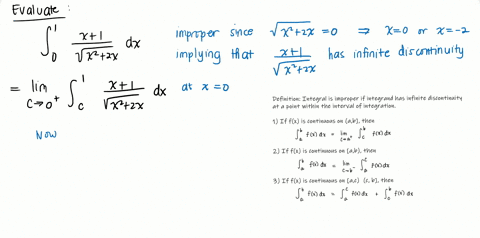 Evaluate :
∫₀¹ (x+1)/√(x²+2x) dx improper since √(x²+2x) = 0 ⇒ x=0 or x=-2
implying that (x+1)/√(x²+2x) has infinite discontinuity
at x=0
= lim c→0⁺ ∫_c¹ (x+1)/√(x²+2x) dx
Now
Definition: Integral is improper if integrand has infinite discontinuity
at a point within the interval of integration.
1) If f(x) is continuous on (a,b], then
∫_a^b f(x) dx = lim c→a⁺ ∫_c^b f(x) dx
2) If f(x) is continuous on [a,b), then
∫_a^b f(x) dx = lim c→b⁻ ∫_a^c f(x) dx
3) If f(x) is continuous on [a,c) (c, b], then
∫_a^b f(x) dx = ∫_a^c f(x) dx + ∫_c^b f(x) dx